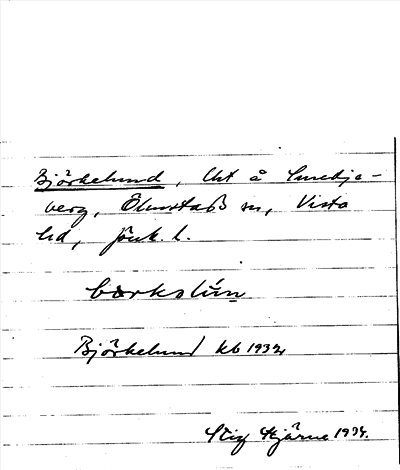 Björkelund, lht å Smedje-
berg, Ölmstads sn, Vista
hd, Jönk. l.
bærkslún
Björkelund kb 1932
Stig Hjärne 1934.